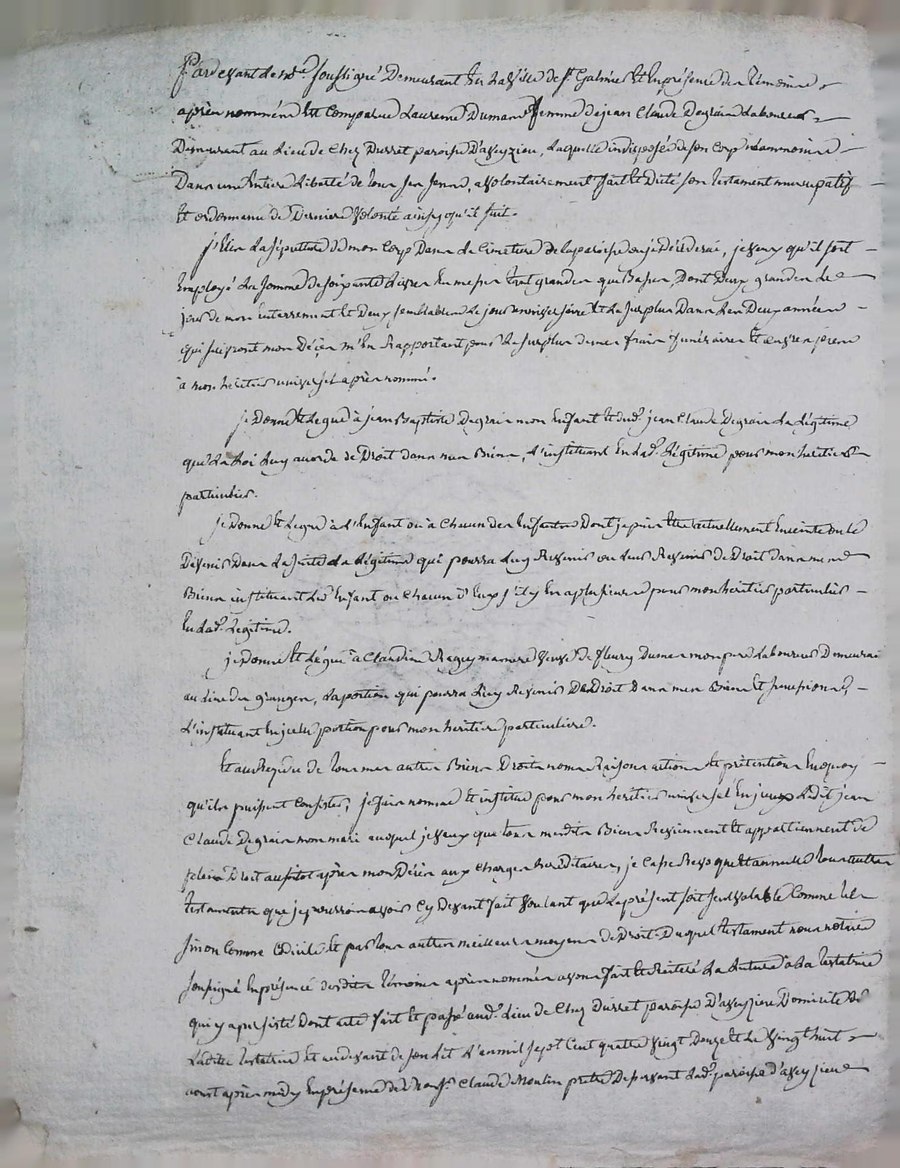 Pardevant le not.re soussigné demeurant en la ville de st Galmier et en présence des témoins
après nommés est comparue Laurence Dumas femme de jean Claude Degrain laboureur
demeurant au lieu de chez Durret paroisse d'aveyzieu, laquelle indisposée de son corp néanmoins
dans une entiere liberté de tous ses sens, a volontairement fait et dicté son testament nuncupatif
et ordonnance de derniere volonté ainsy qu'il suit.
j'élis la sépulture de mon corp dans le cimetiere de la paroisse ou je décéderai, je veux qu'il soit
employé la somme de soixante livres en messes tant grandes que basses dont deux grandes le
jour de mon interrement et deux semblables le jour anniversaire et le surplus dans les deux années
qui suivront mon décès m'en rapportant pour le surplus de mes frais funéraires et œuvres pies
à mon héritier universel après nommé.
je donne et legue à jean Baptiste Degrain mon enfant et dud. jean Claude Degrain la légitime
que la loi luy accorde de droit dans mes biens, l'instituant en lad. légitime pour mon héritier
particulier.
je donne et legue à l'enfant ou à chacun des enfants dont je puis être actuellement enceinte ou le
devenir dans la suite la légitime qui pourra luy revenir ou leur revenir de droit dans mes
biens instituant led. enfant ou chacun d'eux s'il y en a plusieurs pour mon héritier particulier
en lad. légitime.
je donne et légue à Claudine Raguy ma mere veuve de fleury Dumas mon pere laboureur demeurant
au lieu des granges, la portion qui pourra luy revenir de droit dans mes biens et succession,
l'instituant en icelle portion pour mon héritiere particuliere.
Et au résidu de tous mes autres biens droits noms raisons actions et prétentions en quoy
qu'ils puissent consister, je fais nomme et institue pour mon héritier universel en iceux ledit jean
Claude Degrain mon mari auquel je veux que tous mesdits biens reviennent et appartiennent de
plein droit aussitot après mon décès aux charges héréditaires, je casse revoque et annulle tous autres
testaments que je pourrois avoir cy devant fait voulant que le présent soit seul valable comme tel
sinon comme codicile et par tous autres meilleurs moyens de droit. Duquel testament nous notaire
soussigné en présence desdits témoins après nommés avons fait et reiteré la lecture à la testatrice
qui y a persisté dont acte fait et passé aud. lieu de Chez Durret paroisse d'aveyzieu domicile de
ladite testatrice et au devant de son lit l'an mil sept cent quatre vingt douze et le vingt huit
aout après midy en présence de s.r Claude Moulin pretre desservant lad. paroisse d'aveyzieu